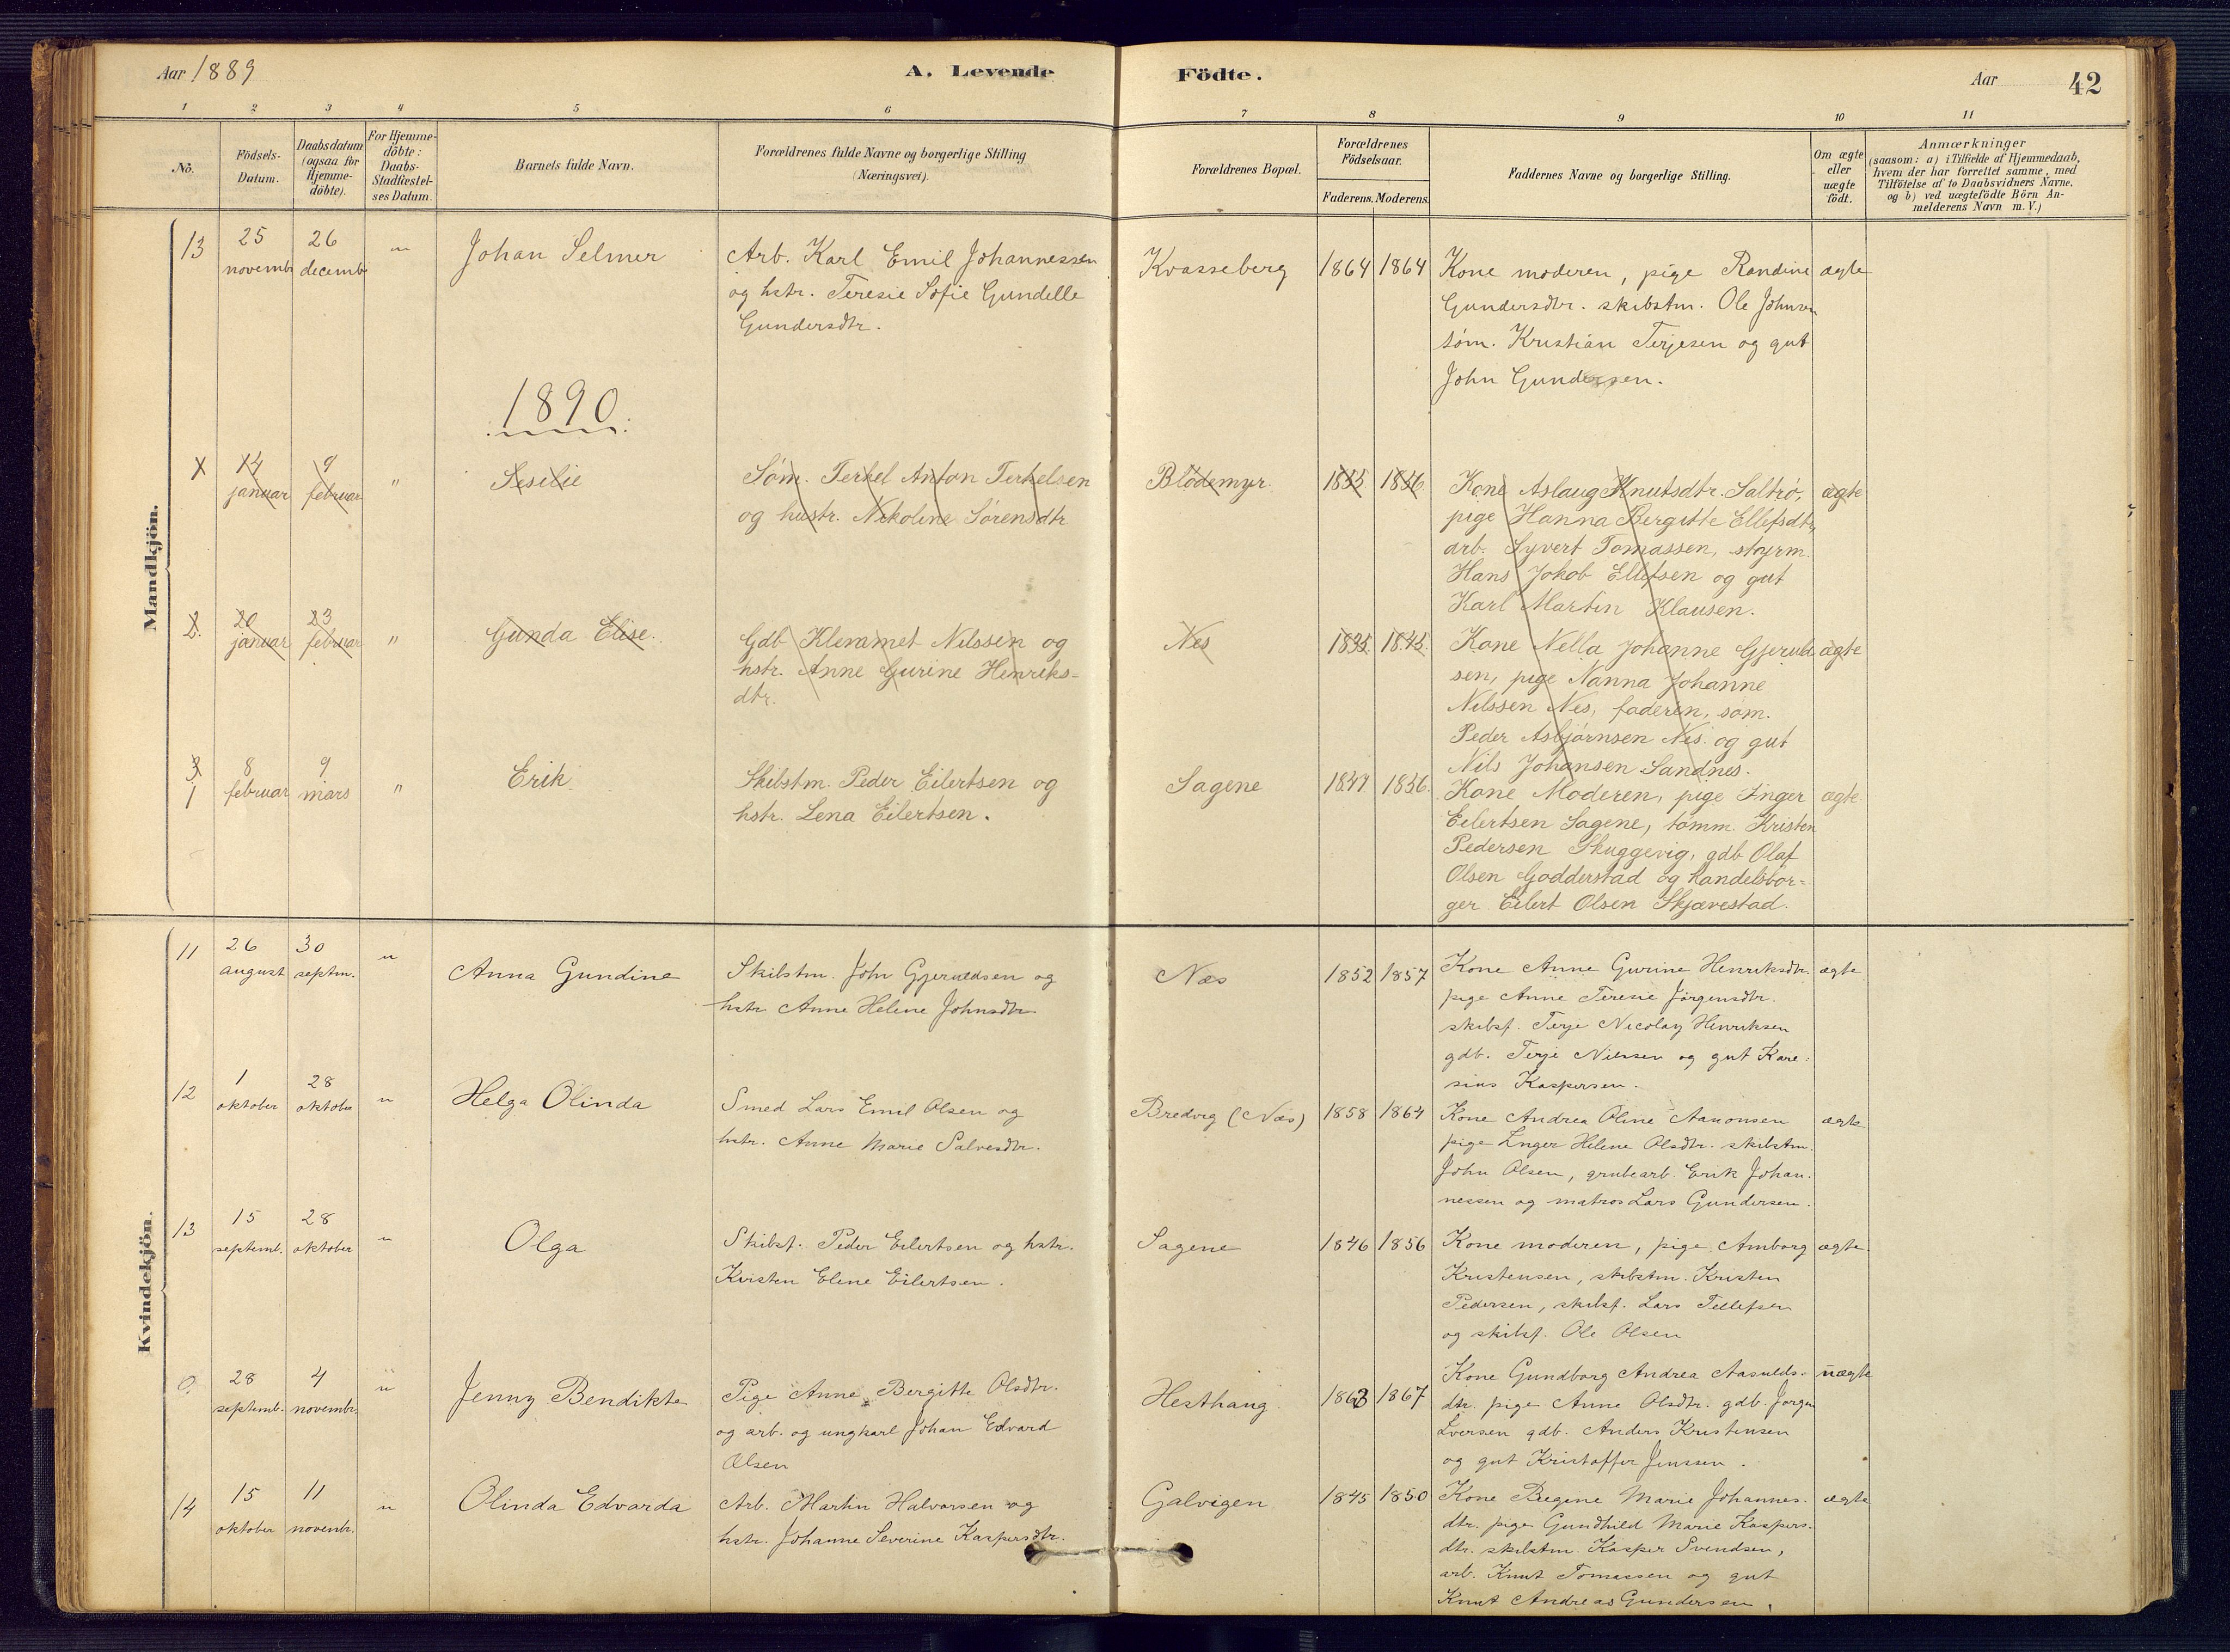 Aar 1889
A. Levende Födte.
Aar
42
1 2 3 4 5 6 7 8 9 10 11
No.
Födsels-Datum.
Daabsdatum (ogsaa for Hjemme-döbte).
For Hjemme-döbte: Daabs-Stadfæstel-ses Datum.
Barnets fulde Navn.
Forældrenes fulde Navne og borgerlige Stilling (Næringsvei).
Forældrenes Bopæl.
Forældrenes Födselsaar.
Faderens. Moderens.
Faddernes Navne og borgerlige Stilling.
Om ægte eller uægte födt.
Anmærkninger
(saasom: a) i Tilfælde af Hjemmedaab,
hvem der har forrettet samme, med
Tilföielse af to Daabsvidners Navne,
og b) ved uægtefödte Börn An-
melderens Navn m.V.)
Mandkjön.
13
25 novembr
26 decemb
"
Johan Selmer
Arb. Karl Emil Johannessen
og hstr. Teresie Sofie Gundelle
Gundersdtr.
Kvasseberg
1864
1864
Kone moderen, pige Randine
Gundersdtr. skibstm. Ole Johnsen
søm. Kristian Terjesen og gut
John Gundersen.
ægte
1890.
1
14 januar
9 februar
"
Sesilie
Søm. Terkel Anton Terkelsen
og hustr. Nikoline Sørensdtr
Blödemyr.
1855
1856
Kone Aslaug Knutsdtr. Saltrø,
pige Hanna Bergitte Ellefsdtr,
arb. Syvert Tomassen, styrm.
Hans Jokob Ellefsen og gut
Karl Martin Klausen.
ægte
2.
20 januar
23 februar
"
Gunda Elise.
Gdb Klemmet Nilssen og
hstr. Anne Gurine Henriks-
dtr.
Nes
1835.
1845.
Kone Nella Johanne Gjeruld
sen, pige Nanna Johanne
Nilssen Nes, faderen, søm.
Peder Asbjørnsen Nes. og gut
Nils Johansen Sandnes.
ægte
3
1
8 februar
9 mars
"
Erik
Skibstm. Peder Eilertsen og
hstr. Lena Eilertsen.
Sagene
1847
1856.
Kone Moderen, pige Inger
Eilertsen Sagene, tømm. Kristen
Pedersen Skuggevig, gdb Olaf
Olsen Godderstad og handelsbor=
ger Eilert Olsen Skjævestad.
ægte.
Kvindekjön.
11
26 august
30 septm.
"
Anna Gundine
Skibstm. John Gjeruldsen og
hstr Anne Helene Johnsdtr
Næs
1852
1857
Kone Anne Gurine Henriksdtr.
pige Anne Teresie Jørgensdtr.
skibsf. Terje Nicolay Henriksen
gdb. Terje Nilssen og gut Kare:
sius Kaspersen.
ægte
12
1 oktober
28 oktober
"
Helga Olinda
Smed Lars Emil Olsen og
hstr. Anne Marie Salvesdtr.
Bredvig (Næs)
1858
1864
Kone Andrea Oline Aanonsen
pige Inger Helene Olsdtr. skibstm.
John Olsen, grubearb. Erik Johan.
nessen og matros Lars Gundersen.
ægte
13
15 septemb.
28 oktober
"
Olga
Skibsf. Peder Eilertsen og hstr.
Kristen Elene Eilertsen.
Sagene
1846
1856
Kone moderen, pige Amborg
Kristensen, skibstm. Kristen
Pedersen, skibsf. Lars Tellefsen
og skibsf. Ole Olsen
ægte.
0.
28 septemb.
4 novembr.
"
Jenny Bendikte
Pige Anne Bergitte Olsdtr.
og arb. og ungkarl Johan Edvard
Olsen
Hesthaug
1863
1867
Kone Gundborg Andrea Aasulds.
dtr. pige Anne Olsdtr. gdb. Jørgen
Iversen gdb. Anders Kristensen
og gut Kristoffer Jenssen.
uægte
14
15 oktober
11 novembr.
"
Olinda Edvarda
Arb. Martin Halvorsen og
hstr. Johanne Severine Kaspersdtr.
Galvigen
1845
1850
Kone Birgine Marie Johannes.
dtr. pige Gundhild Marie Kaspers.
dtr. skibstm. Kasper Svendsen,
arb. Knut Tomassen og gut
Knut Andreas Gundersen.
ægte